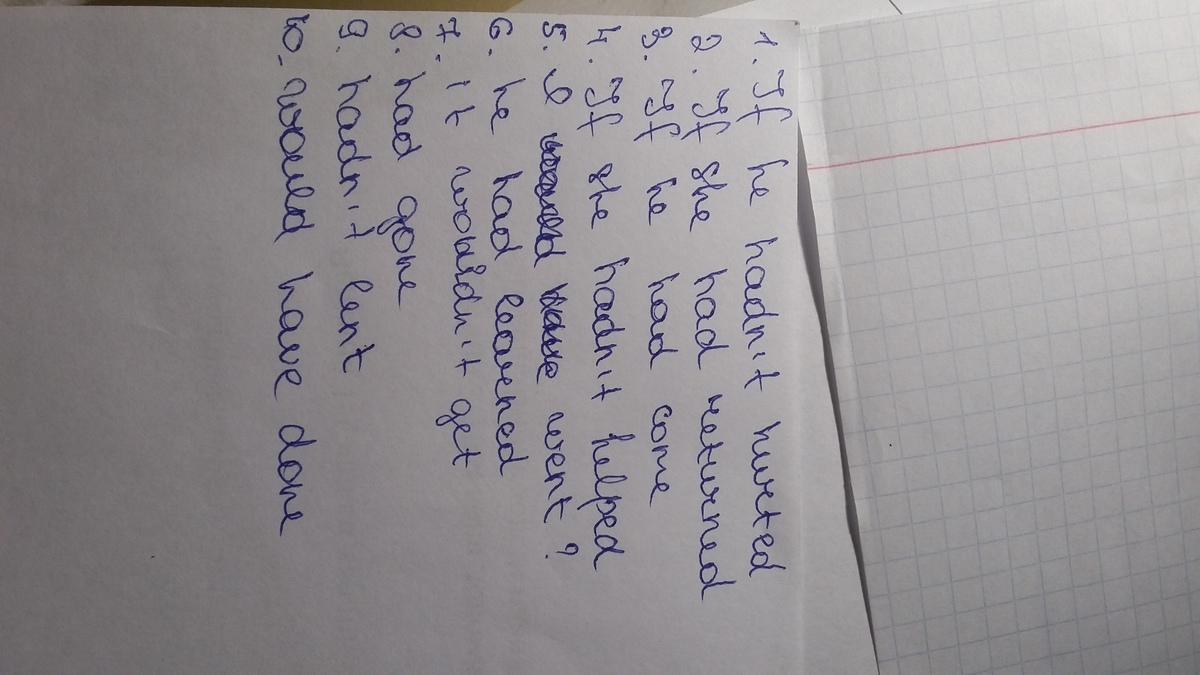 1. If he hadn't hurted
2. If she had returned
3. If he had come
4. If she hadn't helped
5. I went?
6. he had leavened
7. it wouldn't get
8. had gone
9. hadn't lent
10. would have done